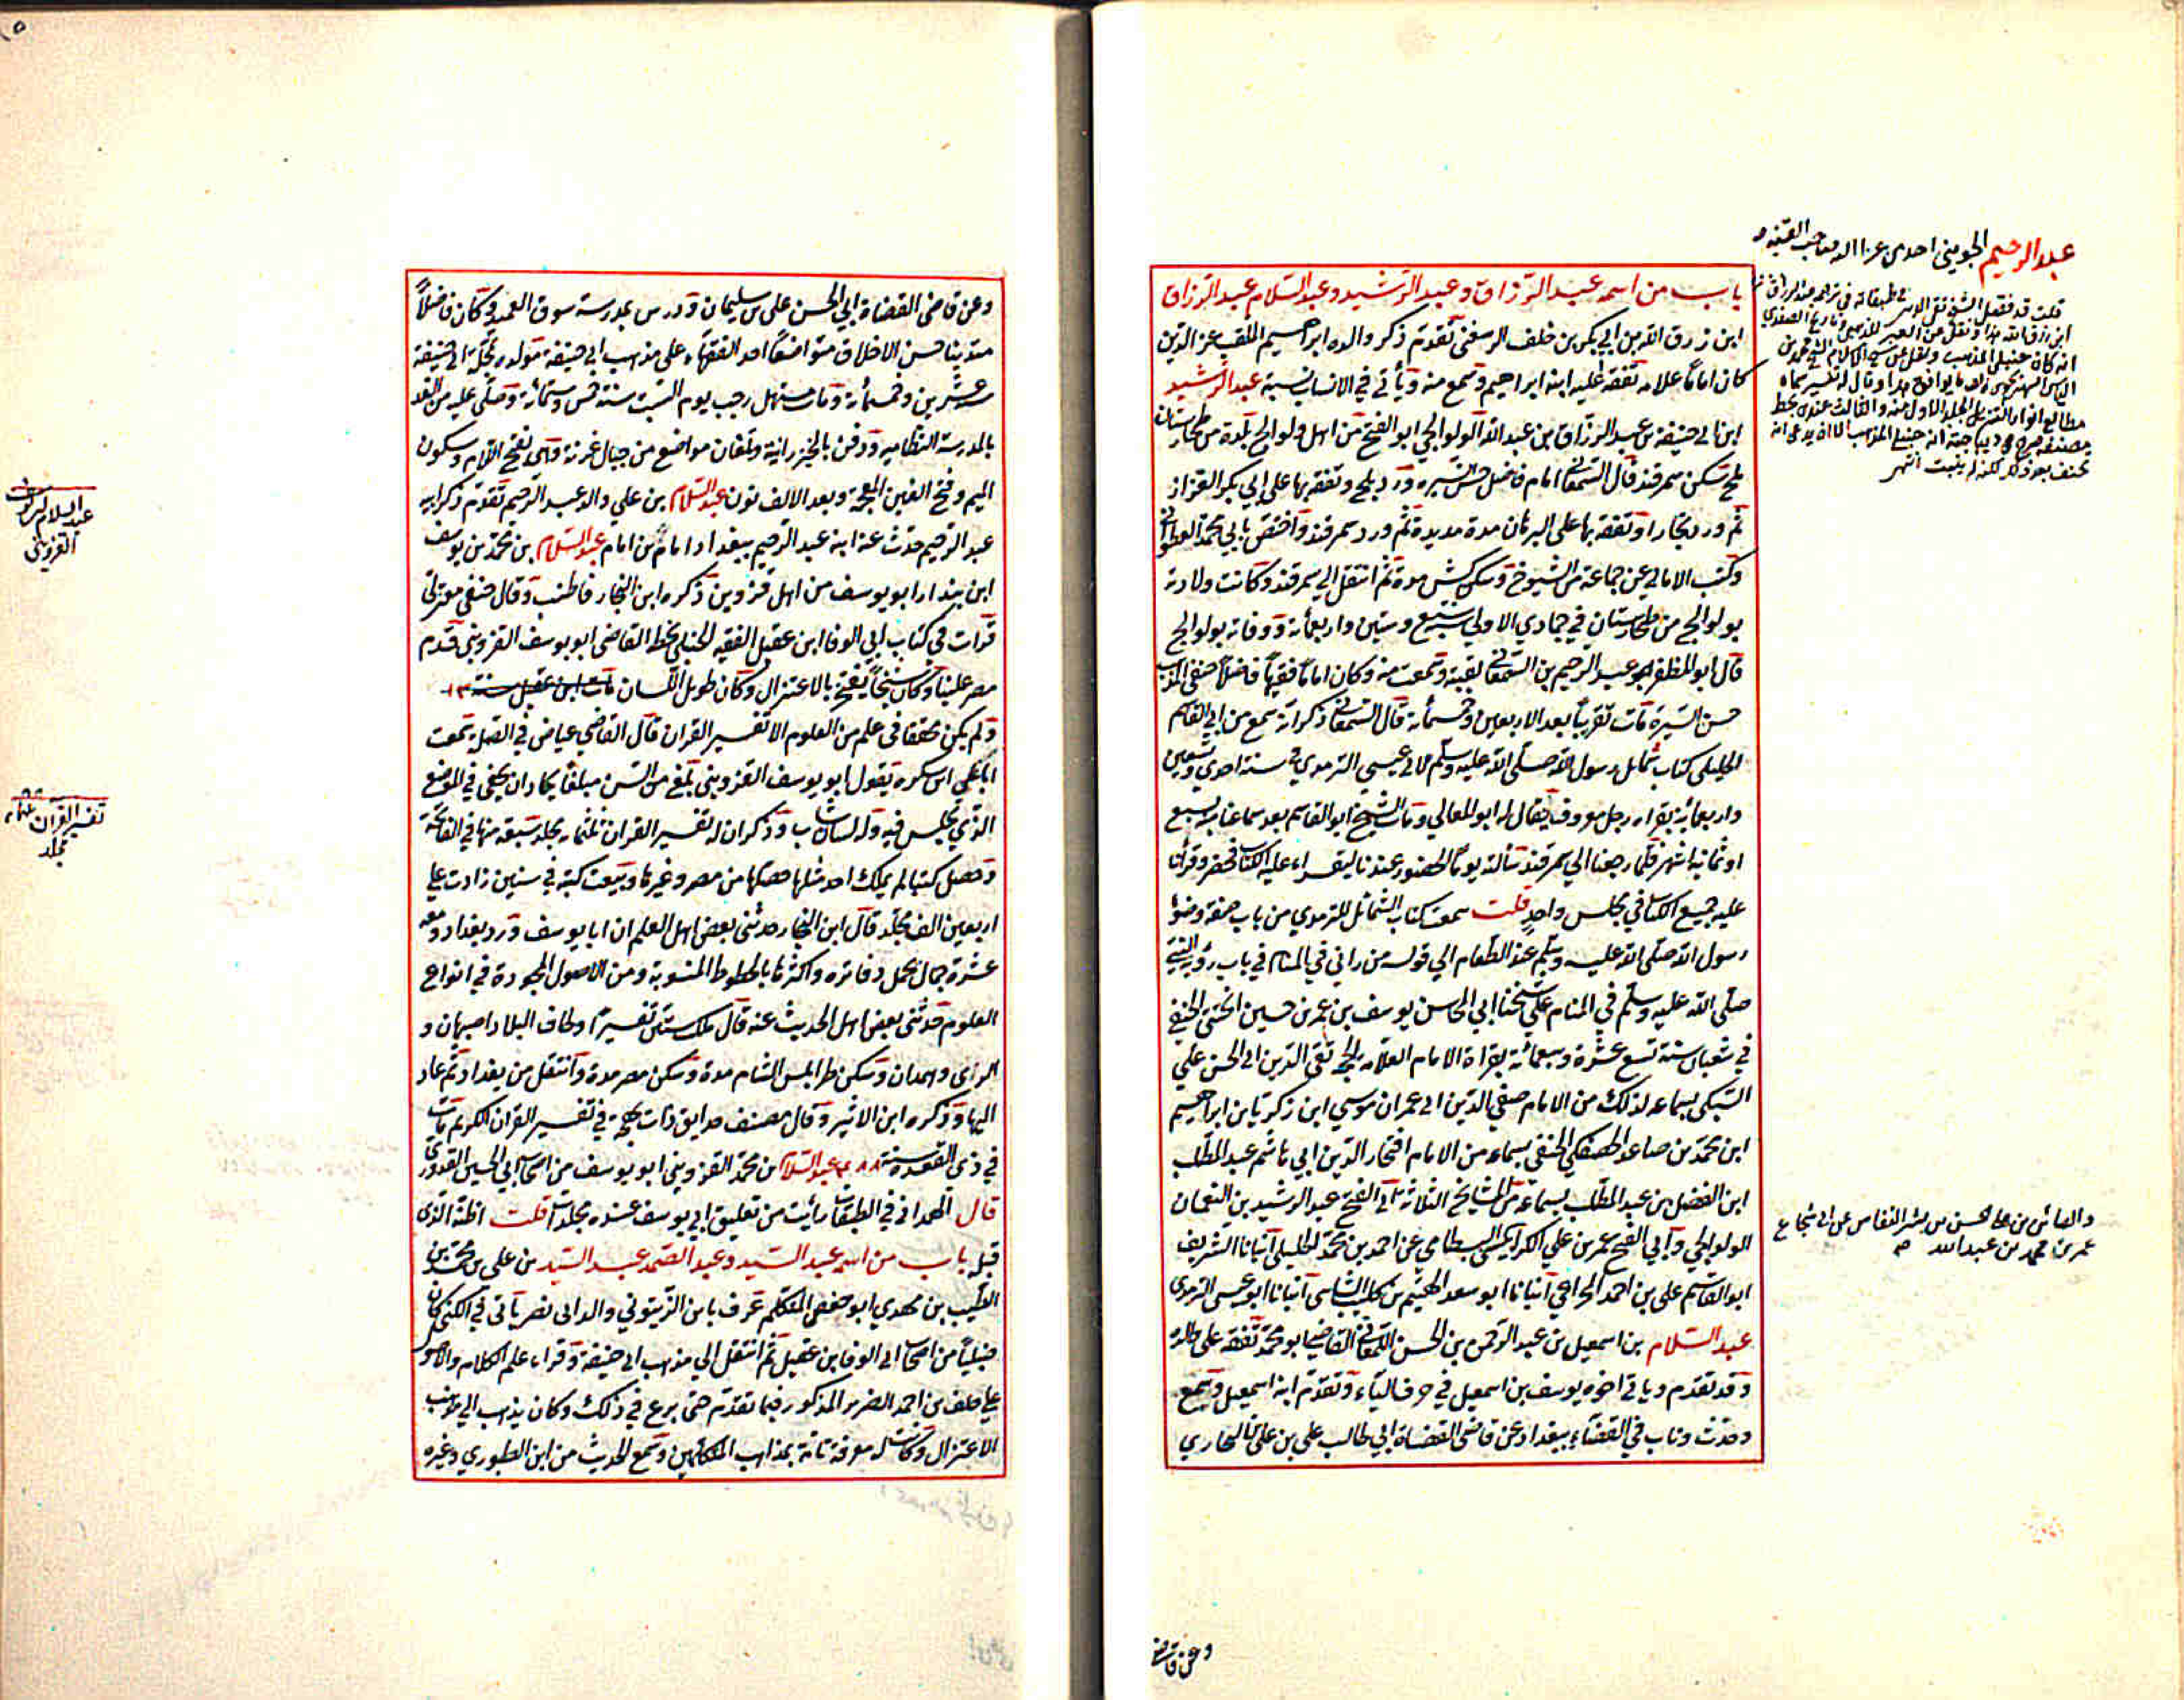 باب من اسمه عبد الرزاق وعبد الرشيد وعبد السلام عبد الرزاق
ابن رزق الله بن ابي بكر بن خلف الرسغني تقدم ذكر والده ابراهيم الملقب عز الدين
كان اماما علامه تفقه عليه ابنه ابراهيم وسمع منه وياتي في الانساب نسبة عبد الرشيد
ابن ابي حنيفة بن عبد الرزاق بن عبد الله الولوالجي ابو الفتح من اهل ولوالج بلدة من طخارستان
بلخ سكن سمرقند قال السمعاني امام فاضل حسن السيره ورد بلخ وتفقه بها على ابي بكر القزاز
ثم ورد بخارا وتفقه بها على البرهان مدة مديدة ثم ورد سمرقند واختص بابي محمد القطواني
وكتب الامالي عن جماعة من الشيوخ وسكن كش مدة ثم انتقل الي سمرقند وكانت ولادته
بولوالج من طخارستان في جمادي الاولى سنة سبع وستين واربعمائة ووفاته بولوالج
قال ابو المظفر عبد الرحيم بن السمعاني لقيته وسمعت منه وكان اماما فقيها فاضلا حنفي المذهب
حسن السيرة مات تقريبا بعد الاربعين وخمسمائة قال السمعاني ذكر انه سمع من ابي القاسم
الخليلي كتاب شمائل رسول الله صلى الله عليه وسلم لابي عيسي الترمذي في سنة احدي وتسعين
واربعمائة بقراءة رجل معروف يقال له ابو المعالي ومات الشيخ ابو القاسم بعد سماعنا بسبع
او ثمانية اشهر فلما رجعنا الي سمرقند سالته يوما الحضور عندنا ليقراء عليه الكتاب فحضر وقرانا
عليه جميع الكتاب في مجلس واحد قلت سمعت كتاب الشمائل للترمذي من باب صفة وضوء
رسول الله صلى الله عليه وسلم عند الطعام الي قوله من راني في المنام في باب رؤية النبي
صلى الله عليه وسلم في المنام على شيخنا ابي المحاسن يوسف بن عمر بن حسين الختني الحنفي
في شعبان سنة تسع عشرة وسبعمائة بقراءة الامام العلامة الحجة تقي الدين ابي الحسن علي
السبكي بسماعه لذلك من الامام صفي الدين ابي عمران موسي ابن زكريا بن ابراهيم
ابن محمد بن صاعد الحصكفي الحنفي بسماعه من الامام افتخار الدين ابي هاشم عبد المطلب
ابن الفضل بن عبد المطلب بسماعه من المشايخ الثلاثة ابي الفتح عبد الرشيد بن النعمان
الولوالجي وابي الفتح عمر بن علي الكرابيسي البسطامي عن احمد بن محمد الخليلي انبانا الشريف
ابو القاسم علي بن احمد الخزاعي انبانا ابو سعد الهيثم بن كليب الشاسي انبانا ابو عيسى الترمذي
عبد السلام بن اسمعيل بن عبد الرحمن بن الحسن اللمغاني القاضي ابو محمد تفقه على والده
وقد تقدم وياتي اخوه يوسف بن اسمعيل في حرف الياء وتقدم ابنه اسمعيل وسمع
وحدث وناب في القضاء ببغداد عن قاضي القضاة ابي طالب علي بن علي البخاري
عبد الرحيم الجويني احدى
والفائس بن علي
عمر بن محمد بن عبد الله
وعن قاضي
وعن قاضي القضاة ابي الحسن علي بن سليمان ودرس بمدرسة سوق العميد وكان فاضلا
متدينا حسن الاخلاق متواضعا احد الفقهاء على مذهب ابي حنيفة مولده بمحلة ابي حنيفة
سنة عشرين وخمسمائة ومات مستهل رجب يوم السبت سنة خمس وستمائة وصلي عليه من الغد
بالمدرسة النظاميه ودفن بالخيزرانية ولمغان مواضع من جبال غزنة وهي بفتح اللام وسكون
الميم وفتح الغين المعجمة وبعد الالف نون عبد السلام بن علي والد عبد الرحيم تقدم ذكر ابيه
عبد الرحيم حدث عنه ابنه عبد الرحيم ببغداد امام بن امام عبد السلام بن محمد بن يوسف
ابن بندار ابو يوسف من اهل قزوين ذكره ابن النجار فاطنب وقال حنفي معتزلي
قرات في كتاب ابي الوفا ابن عقيل الفقيه الحنبلي بخطه القاضي ابو يوسف القزويني قدم
مصر علينا وكان شيخا يفتخر بالاعتزال وكان طويل اللسان مات ابن عقيل سنة ٥١٣
ولم يكن محققا في علم من العلوم الا تفسير القران قال القاضي عياض في الصلة سمعت
ابا علي ابن سكره يقول ابو يوسف القزويني بلغ من السن مبلغا يكاد ان يخفي في الموضع
الذي يجلس فيه وله لسان شاب وذكر ان له تفسير القران ثلثمائه مجلد سبعة منها في الفاتحة
وحصل كتبا لم يملك احد مثلها حصلها من مصر وغيرها وبيعت كتبه في سنين زادت علي
اربعين الف مجلد قال ابن النجار حدثني بعض اهل العلم ان ابا يوسف ورد بغداد ومعه
عشرة جمال يحمل دفاتره واكثرها بالخطوط المنسوبة ومن الاصول المجودة في انواع
العلوم حدثني بعض اهل الحديث عنه قال ملكت ستين تفسيرا وطاف البلاد اصبهان و
الري وهمدان وسكن طرابلس الشام مدة وسكن مصر مدة وانتقل من بغداد ثم عاد
اليها وذكره ابن الاثير وقال مصنف حدايق ذات بهجة في تفسير القران الكريم مات
في ذي القعدة سنة ٤٨٨ عبد السلام بن محمد القزويني ابو يوسف من اصحاب ابي الحسين القدوري
قال الهمداني في الطبقات رايت من تعليق ابي يوسف عشره مجلدات قلت اظنه الذي
قبله باب من اسمه عبد السيد وعبد الصمد عبد السيد بن علي بن محمد بن
الطيب بن مهدي ابو جعفر المتكلم عرف بابن الزيتوني والد ابي نصر ياتي في الكني كان
حنبليا من اصحاب ابي الوفا بن عقيل ثم انتقل الي مذهب ابي حنيفة وقراء علم الكلام والاصول
علي خلف بن احمد الضرير المذكور فيما تقدم حتى برع في ذلك وكان يذهب الي مذهب
الاعتزال وكانت له معرفة تامة بمذاهب المتكلمين وسمع الحديث من ابن الطيوري وغيره
عبد السلام
القزويني
تفسير القران
مجلد